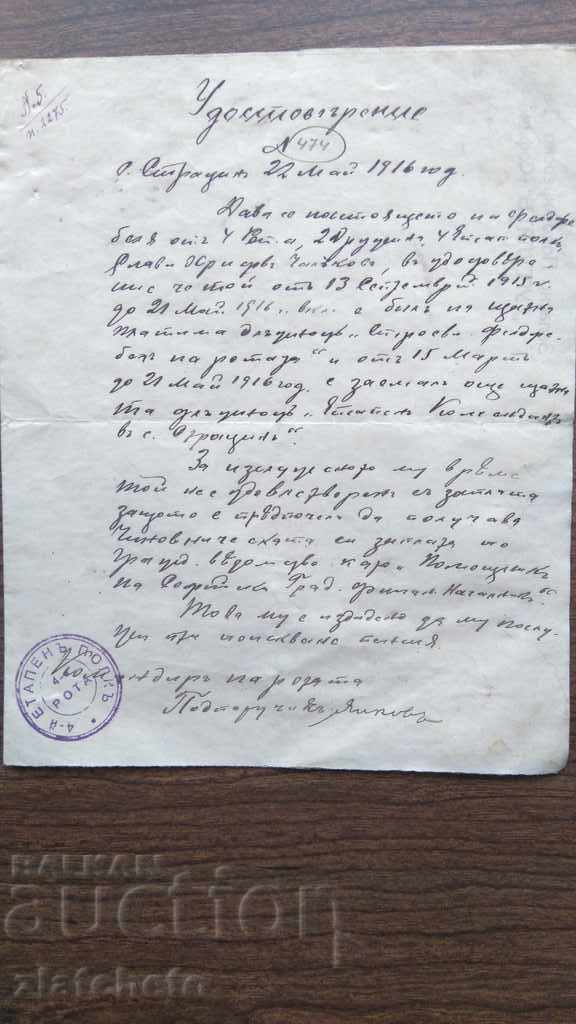 Л.5.
п. 2275.
Удостовѣрение
№ 474
с. Страцинъ 22 Май 1916 год.
Дава се настоящето на фелдфе-
беля отъ 4 рота, 2 Дружина, 4 Етап. полкъ,
Слави Христовъ въ удостовѣре-
ние че той отъ 13 Септемврий 1915 г.
до 21 Май 1916 г. вкл. е билъ на щатна
платима длъжность „Строеви Фелдфе-
бель на ротата“ и отъ 15 Мартъ
до 21 Май 1916 год. е заемалъ още щатна-
та длъжность „Етапенъ Комендантъ
въ с. Страцинъ“.
За изслуженото му време
той не е удовлетворенъ съ заплата
защото е предпочелъ да получава
Чиновническата си заплата по
гражд. вѣдомство като „Помощникъ
на Софийски Град. финанс. Началникъ“.
Това му се издаде да му послу-
жи при поискване пенсия.
Командиръ на ротата
Подпоручикъ
4-й ЕТАПЕНЪ ПОЛКЪ
4-а
РОТА
BALKAN
auction
zlatchefn